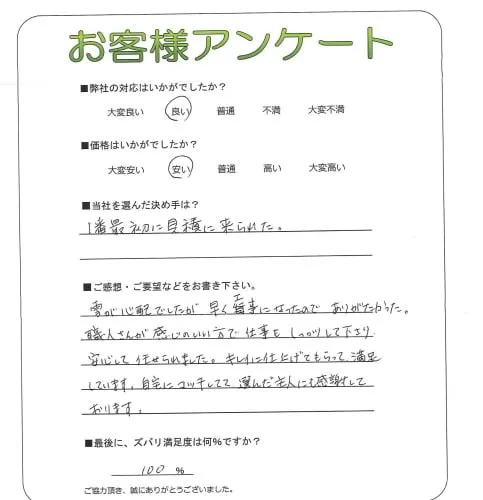 お客様アンケート
■弊社の対応はいかがでしたか?
大変良い 良い 普通 不満 大変不満
■価格はいかがでしたか?
大変安い 安い 普通 高い 大変高い
■当社を選んだ決め手は?
1番最初に見積に来られた。
■ご感想・ご要望などをお書き下さい。
雪が心配でしたが早く工事になったので ありがたかった。
職人さんが感じのいい方で仕事をしっかりして下さり
安心して任せられました。キレイに仕上げてもらって満足
しています。自宅にマッチしてて選んだ主人にも感謝して
おります。
■最後に、ズバリ満足度は何%ですか?
100 %
ご協力頂き、誠にありがとうございました。